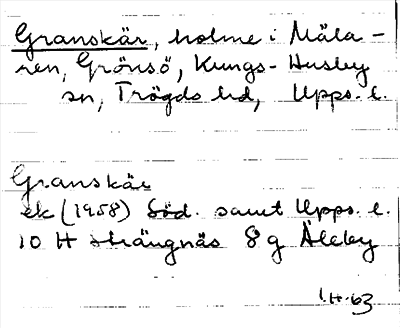 Granskär, holme i Mäla-
ren, Grönsö, Kungs-Husby
sn, Trögds hd, Upps. l.
Granskär
ek (1958) Söd. samt Upps. l.
10 H Strängnäs 8 g Äleby
1.H.63